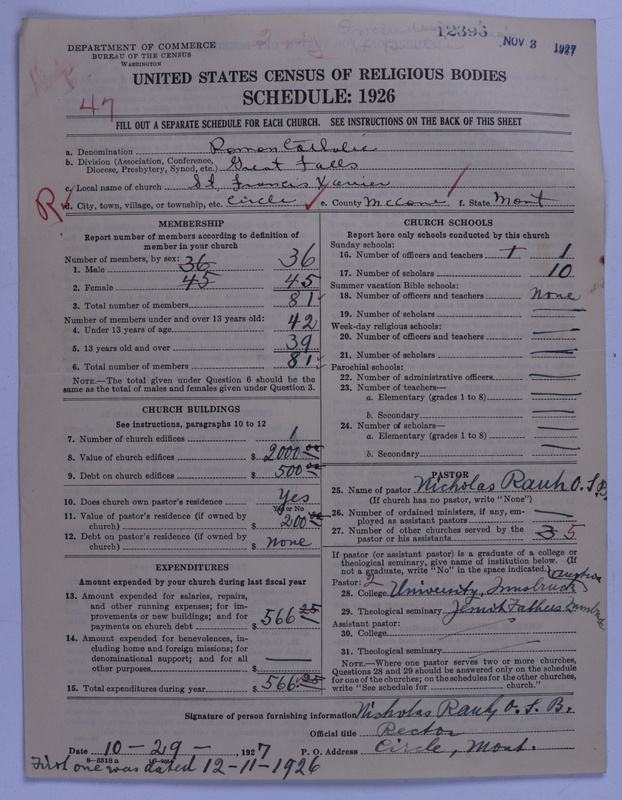 12396
NOV 3 1927
DEPARTMENT OF COMMERCE
BUREAU OF THE CENSUS
WASHINGTON
47
UNITED STATES CENSUS OF RELIGIOUS BODIES
SCHEDULE: 1926
FILL OUT A SEPARATE SCHEDULE FOR EACH CHURCH. SEE INSTRUCTIONS ON THE BACK OF THIS SHEET
a. Denomination Roman Catholic
b. Division (Association, Conference, Diocese, Presbytery, Synod, etc.) Great Falls
c. Local name of church SS. Francis Xavier
R d. City, town, village, or township, etc. Circle e. County McCone f. State Mont
MEMBERSHIP
Report number of members according to definition of
member in your church
Number of members, by sex:
1. Male 36 36
2. Female 45 45
3. Total number of members 81
Number of members under and over 13 years old:
4. Under 13 years of age 42
5. 13 years old and over 39
6. Total number of members 81
NOTE.—The total given under Question 6 should be the
same as the total of males and females given under Question 3.
CHURCH BUILDINGS
See instructions, paragraphs 10 to 12
7. Number of church edifices 1
8. Value of church edifices $ 2000 00
9. Debt on church edifices $ 500 00
10. Does church own pastor's residence Yes
Yes or No
11. Value of pastor's residence (if owned by
church) $ 200
12. Debt on pastor's residence (if owned by
church) $ none
EXPENDITURES
Amount expended by your church during last fiscal year
13. Amount expended for salaries, repairs,
and other running expenses; for im-
provements or new buildings; and for
payments on church debt $ 566 25
14. Amount expended for benevolences, in-
cluding home and foreign missions; for
denominational support; and for all
other purposes $ —
15. Total expenditures during year $ 566 25
CHURCH SCHOOLS
Report here only schools conducted by this church
Sunday schools:
16. Number of officers and teachers 1 1
17. Number of scholars 10
Summer vacation Bible schools:
18. Number of officers and teachers none
19. Number of scholars —
Week-day religious schools:
20. Number of officers and teachers —
21. Number of scholars —
Parochial schools:
22. Number of administrative officers —
23. Number of teachers—
a. Elementary (grades 1 to 8) —
b. Secondary —
24. Number of scholars—
a. Elementary (grades 1 to 8) —
b. Secondary —
PASTOR
25. Name of pastor Nicholas Rauh O.S.B.
(If church has no pastor, write "None")
26. Number of ordained ministers, if any, em-
ployed as assistant pastors —
27. Number of other churches served by the
pastor or his assistants 3 5
If pastor (or assistant pastor) is a graduate of a college or
theological seminary, give name of institution below. (If
not a graduate, write "No" in the space indicated)
Pastor: 2 Austria
28. College University, Innsbruck
29. Theological seminary Jesuit Fathers Innsbruck
Assistant pastor:
30. College
31. Theological seminary
NOTE.—Where one pastor serves two or more churches,
Questions 28 and 29 should be answered only on the schedule
for one of the churches; on the schedules for the other churches,
write "See schedule for church."
Signature of person furnishing information Nicholas Rauh, O.S.B.
Official title Rector
Date 10-29-, 1927 P. O. Address Circle, Mont.
8—5518 a
First one was dated 12-11-1926